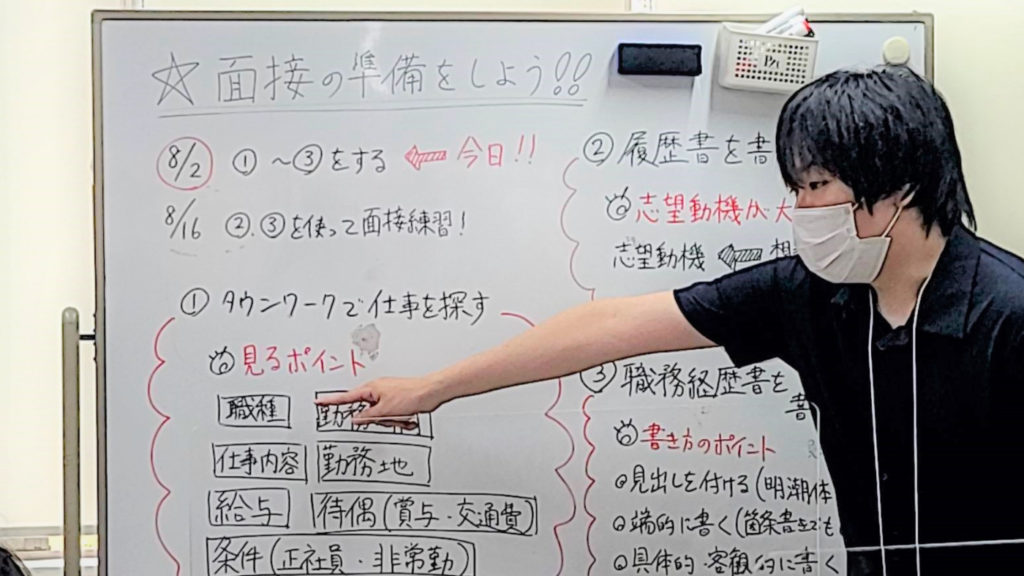 ☆面接の準備をしよう!!
8/2 ①～③をする ⇐ 今日!!
8/16 ②.③を使って面接練習!
①タウンワークで仕事を探す
見るポイント
職種 勤務
仕事内容 勤務地
給与 待偶(賞与・交通費)
条件(正社員・非常勤)
②履歴書を書
志望動機が大
志望動機 ⇐
③職務経歴書を
書
書き方のポイント
◎見出しを付ける(明潮体
◎端的に書く(箇条書きでも
◎具体的・客観的に書く